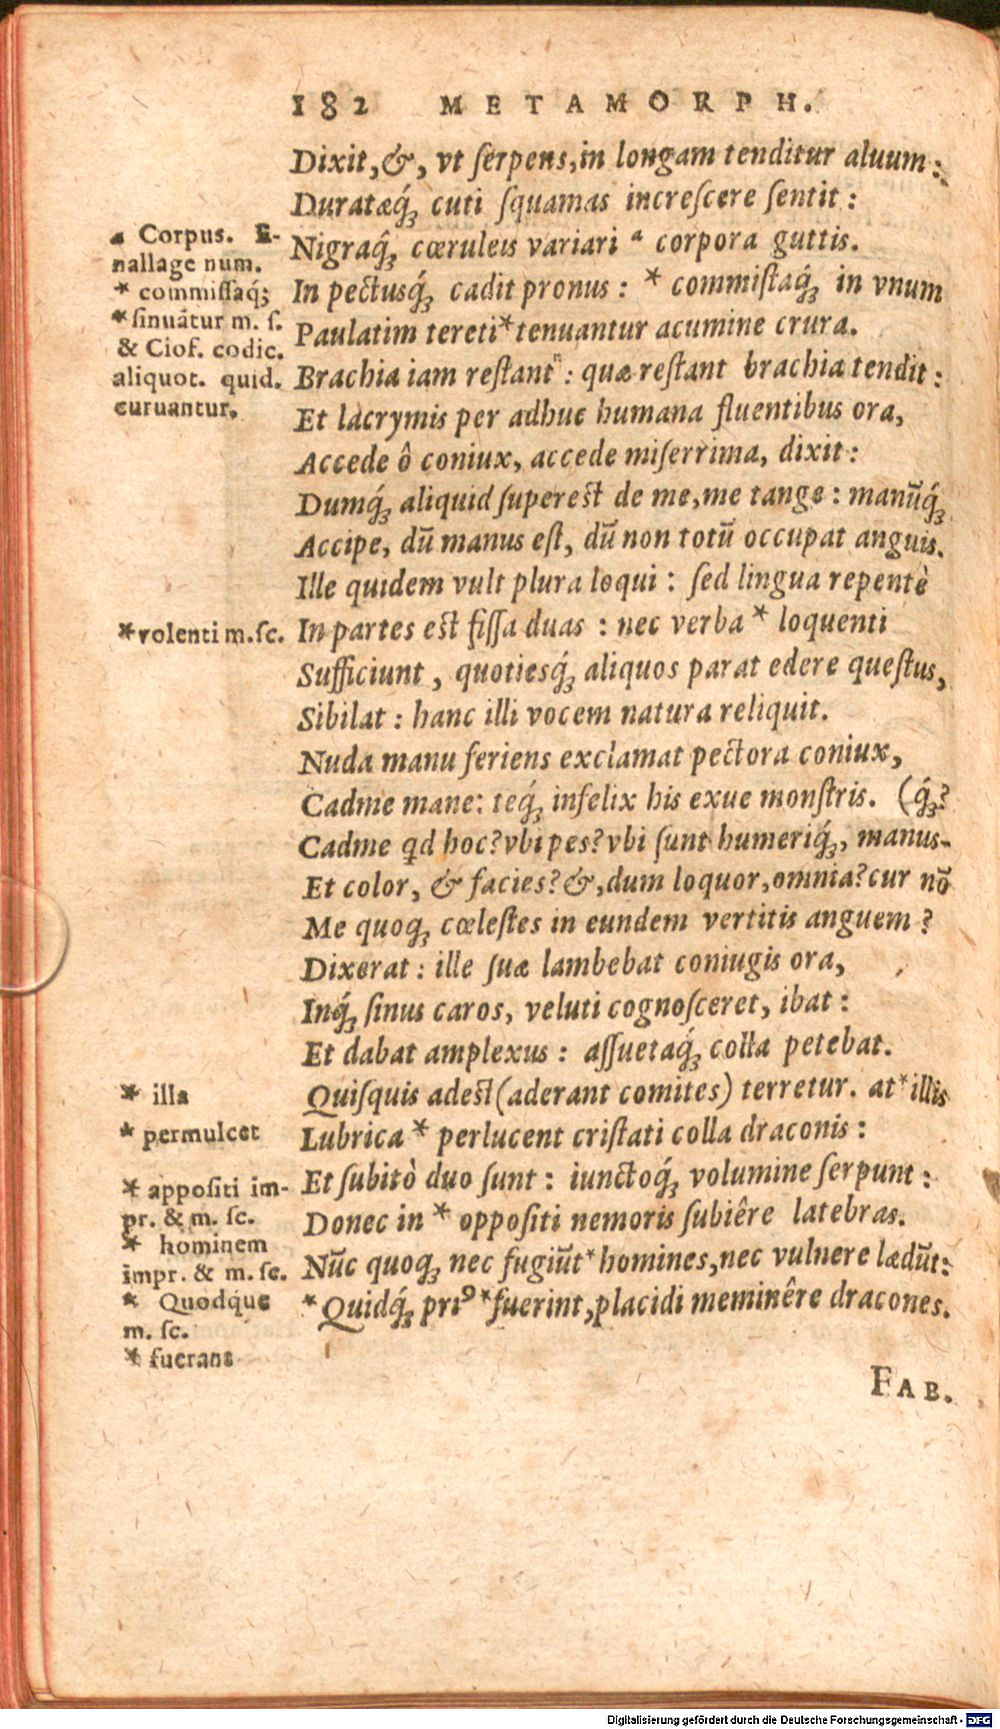 182 METAMORPH.
Dixit,&, vt ſerpens,in longam tenditur aluum:
Duratæq́ꝫ cuti ſquamas increſcere ſentit:
Nigraq́ꝫ cœruleis variari ᵃ corpora guttis.
In pectusq́ꝫ cadit pronus: * commiſtaq́ꝫ in vnum
Paulatim tereti*tenuantur acumine crura.
Brachia iam reſtantⁿ: quæ reſtant brachia tendit:
Et lacrymis per adhuc humana fluentibus ora,
Accede ô coniux, accede miſerrima, dixit:
Dumq́ꝫ aliquid ſupereſt de me,me tange: manūq́ꝫ
Accipe, dū manus eſt, dū non totū occupat anguis.
Ille quidem vult plura loqui: ſed lingua repentè
In partes eſt fiſſa duas: nec verba * loquenti
Sufficiunt, quotiesq́ꝫ aliquos parat edere queſtus,
Sibilat: hanc illi vocem natura reliquit.
Nuda manu feriens exclamat pectora coniux,
Cadme mane: teq́ꝫ infelix his exue monſtris. (q́ꝫ?
Cadme qd hoc?vbi pes?vbi ſunt humeriq́ꝫ, manus-
Et color, & facies?&,dum loquor,omnia?cur nō
Me quoqꝫ cœleſtes in eundem vertitis anguem?
Dixerat: ille ſuæ lambebat coniugis ora,
Inq́ꝫ ſinus caros, veluti cognoſceret, ibat:
Et dabat amplexus: aſſuetaq́ꝫ colla petebat.
Quiſquis adeſt(aderant comites) terretur. at*illis
Lubrica * perlucent criſtati colla draconis:
Et ſubitò duo ſunt: iunctoq́ꝫ volumine ſerpunt:
Donec in * oppoſiti nemoris ſubiêre latebras.
Nūc quoqꝫ nec fugiūt*homines,nec vulnere lædūt:
*Quidq́ꝫ priꝰ*fuerint,placidi meminêre dracones.
FAB.
a Corpus. E-
nallage num.
* commiſſaq́;
*ſinuātur m. ſ.
& Ciof. codic.
aliquot. quid.
curuantur.
*volenti m.ſc.
* illa
* permulcet
* appoſiti im-
pr. & m. ſc.
* hominem
impr. & m. ſc.
* Quodque
m. ſc.
* fuerant
Digitalisierung gefördert durch die Deutsche Forschungsgemeinschaft - DFG